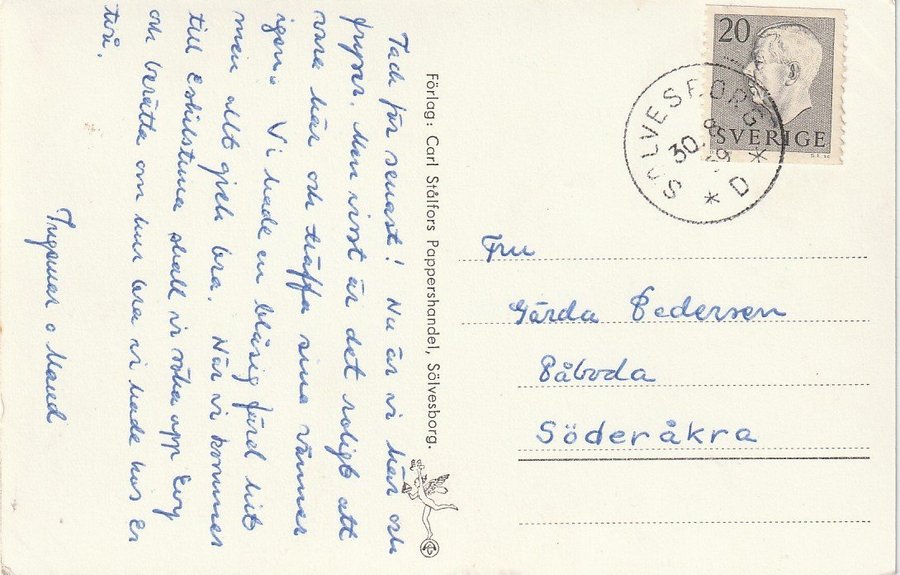 Tack för senast! Nu är vi här och
fryser. Men visst är det roligt att
vara här och träffa sina vänner
igen. Vi hade en blåsig färd hit
men allt gick bra. När vi kommer
till Eskilstuna skall vi söka upp Evy
och berätta om hur bra vi hade hos Er
två.
Ingemar o Maud
Förlag: Carl Stålfors Pappershandel, Sölvesborg.
20
SVERIGE
SÖLVESBORG
30. 8
* D *
Fru
Gärda Pedersen
Påboda
Söderåkra